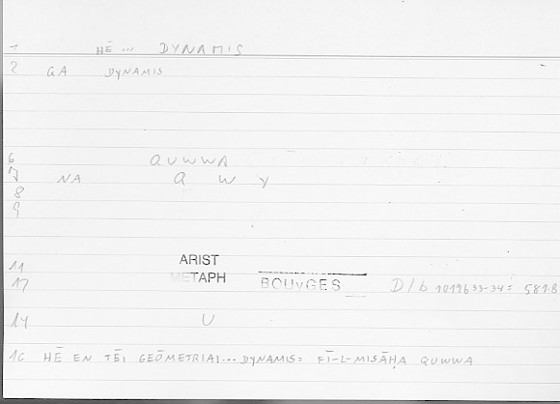 1 HĒ ... DYNAMIS
2 GA DYNAMIS
6 QUWWA
7 NA Q W Y
8
9
11 ARIST
12 METAPH BOUYGES D/b 1019b33-34 = 581.8
14 U
16 HĒ EN TĒI GEŌMETRIAI... DYNAMIS: FĪ-L-MISĀḤA QUWWA